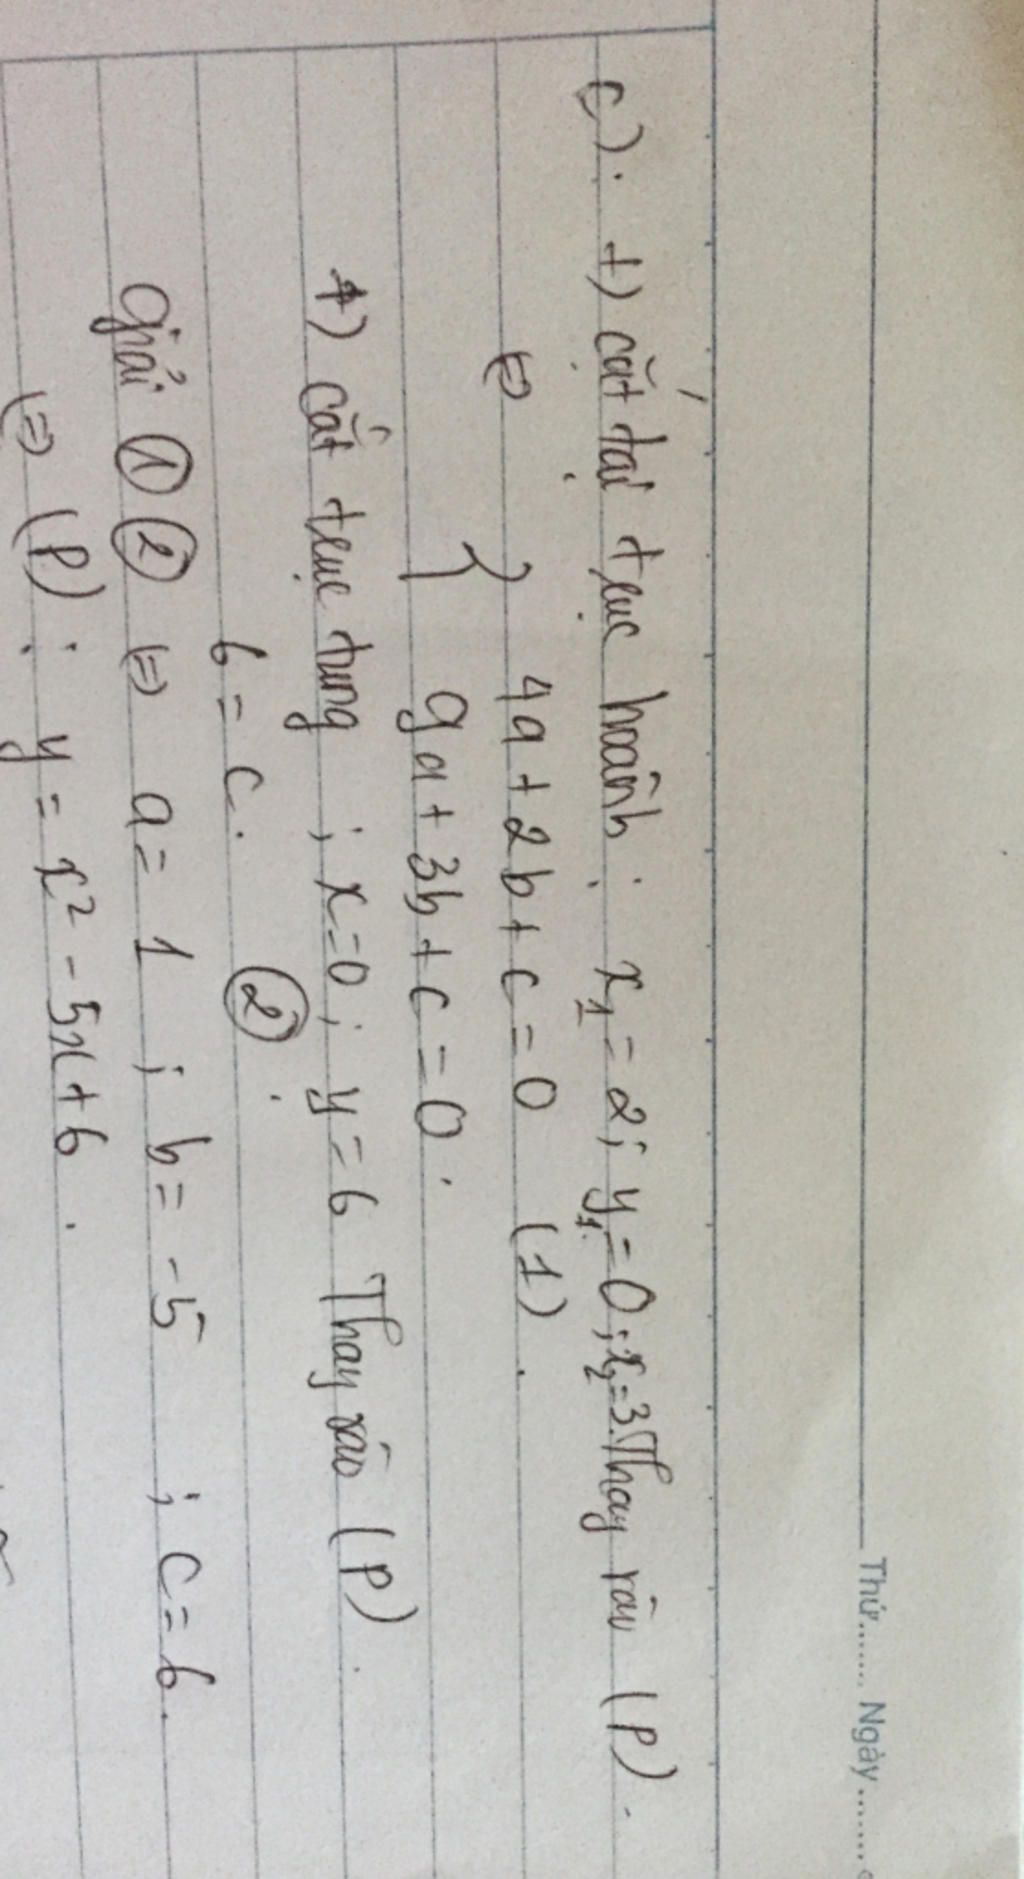 Thứ........ Ngày........
c). +) cắt tại trục hoành : x₁ = 2; y₁ = 0; x₂ = 3. Thay vào (P).
⇔ { 4a + 2b + c = 0 (1).
9a + 3b + c = 0.
+) cắt trục tung ; x = 0; y = 6 Thay vào (P).
6 = c. ②.
Giải ① ② ⇔ a = 1 ; b = -5 ; c = 6.
⇔ (P) : y = x² - 5x + 6.